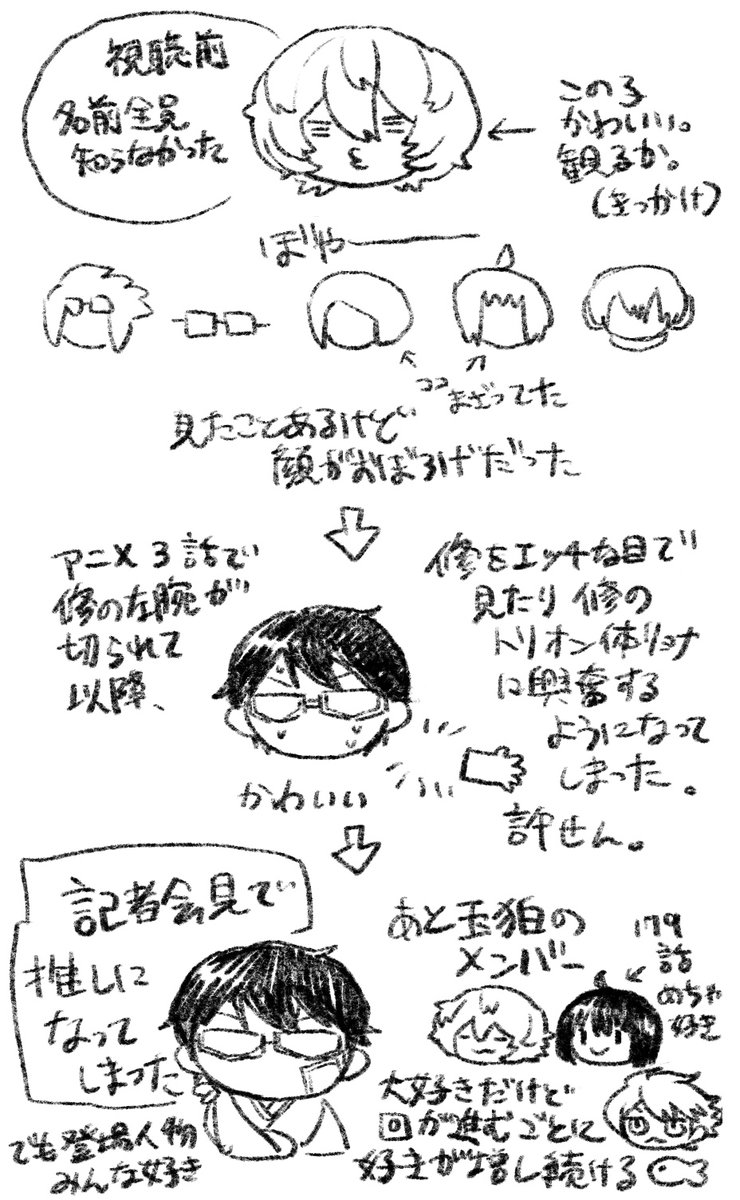 視聴前
名前全員
知らなかった
この子
かわいい。
観るか。
(きっかけ)
ぼや——
ココ
まざってた
見たことあるけど
顔がおぼろげだった
アニメ3話で
修の左腕が
切られて
以降、
修をエッチな目で
見たり修の
トリオン体リョナ
に興奮する
ようになって
しまった。
許せん。
かわいい
記者会見で
推しに
なって
しまった
でも登場人物
みんな好き
あと玉狛の
メンバー
179
話
めちゃ
好き
大好きだけど
回が進むごとに
好きが増し続ける